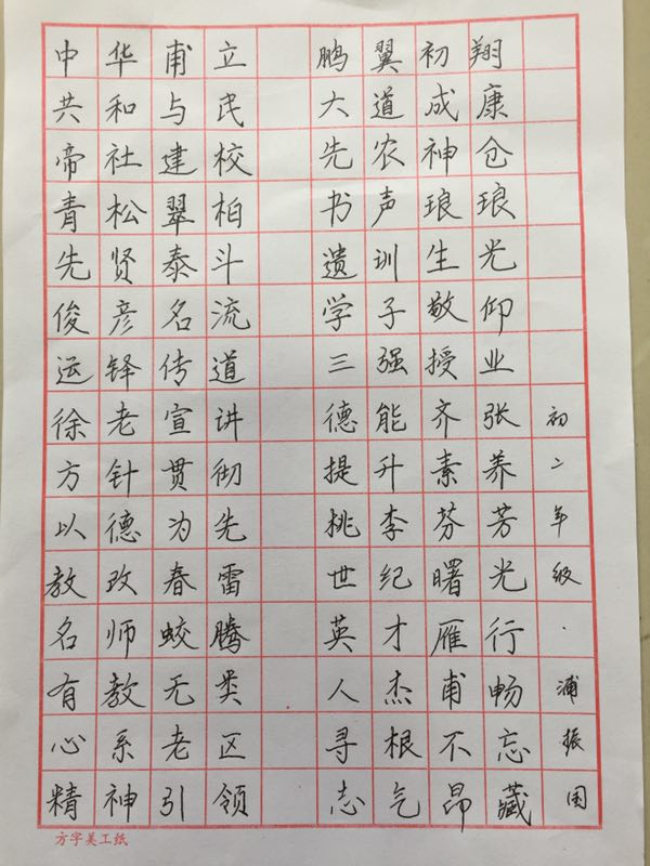 中华甫立 鹏翼初翔
共和与民 大道成康
帝社建校 先农神仓
青松翠柏 书声琅琅
先贤泰斗 遗训生光
俊彦名流 学子敬仰
运铎传道 三强授业
徐老宣讲 德能齐张
方针贯彻 提升素养
以德为先 桃李芬芳
教改春雷 世纪曙光
名师蛟腾 英才雁行
有教无类 人杰甫畅
心系老区 寻根不忘
精神引领 志气昂藏
初二年级·浦振国
方字美工纸